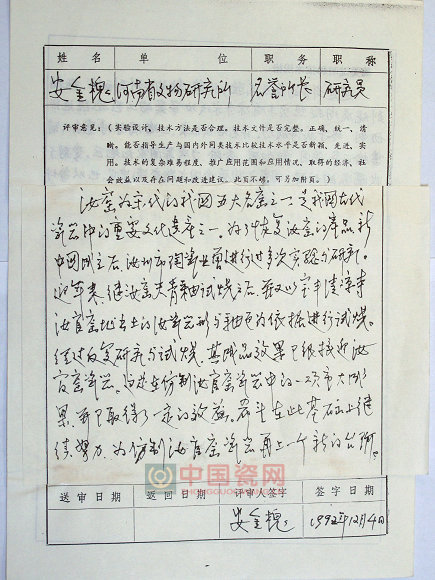 姓 名 单 位 职 务 职 称
安金槐 河南省文物研究所 名誉所长 研究员
评审意见：（实验设计，技术方法是否合理。技术文件是否完整。正确，统一，清
晰。能否指导生产与国内外同类技术比较技术水平是否新颖、先进、实
用。技术的复杂难易程度、推广应用范围和应用情况。取得的经济、社
会效益以及存在问题和改进建议。此页不够，可另加附页。）
汝窑为宋代的我国五大名窑之一，是我国古代
瓷器中的重要文化遗产之一。为了恢复汝窑的产品，新
中国成立后，汝州的陶瓷业曾进行过多次实验与研究。
近年来，继汝窑天青釉试烧之后，又以宝丰清凉寺
汝官窑址出土的汝瓷器形与釉色为依据进行试烧。
经过反复研究与试烧，其成品效果已很接近汝
官窑瓷器。当是在仿制汝官窑瓷器中的一项重大成
果，并已取得了一定的效益。希望在此基础上继
续努力，为仿制汝官窑瓷器再上一个新的台阶。
中国瓷网
送审日期 返回日期 评审人签字 签字日期
安金槐 1992年12月4日